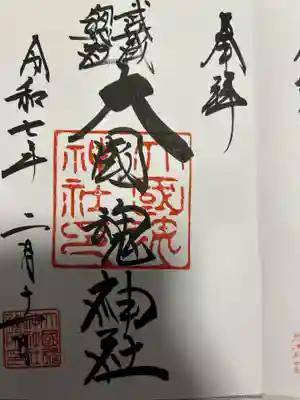 奉拝
武蔵
總社
大國魂神社
大國魂
神社印
令和七年 二月十一日